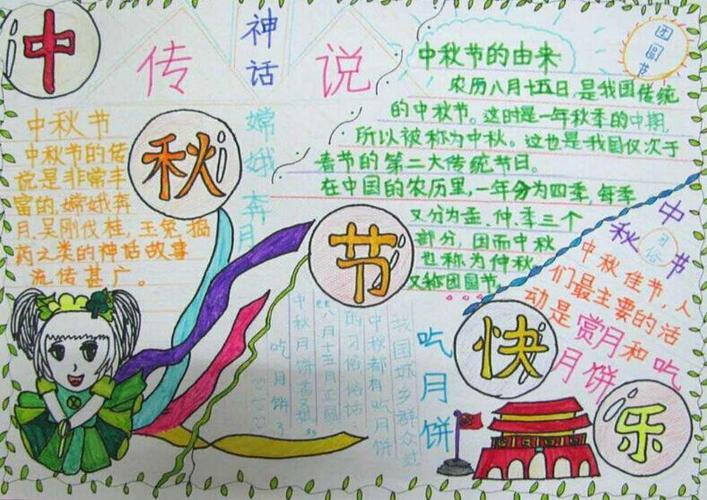 中
秋
节
快
乐
神话
传
说
团圆节
中秋节的由来
农历八月十五日,是我国传统
的中秋节。这时是一年秋季的中期,
所以被称为中秋。这也是我国仅次于
春节的第二大传统节日。
在中国的农历里,一年分为四季,每季
又分为孟,仲,季三个
部分,因而中秋
也称为仲秋
又称团圆节。
中秋节
中秋节的传
说是非常丰
富的,嫦娥奔
月,吴刚伐桂,玉兔捣
药之类的神话故事
流传甚广。
嫦娥奔月
中秋节
习俗
中秋佳节,人
们最主要的活
动是赏月和吃
月饼
吃月饼
我国城乡群众过
中秋都有吃月饼
的习俗俗话:
八月十五月正圆
中秋月饼香
吃月饼